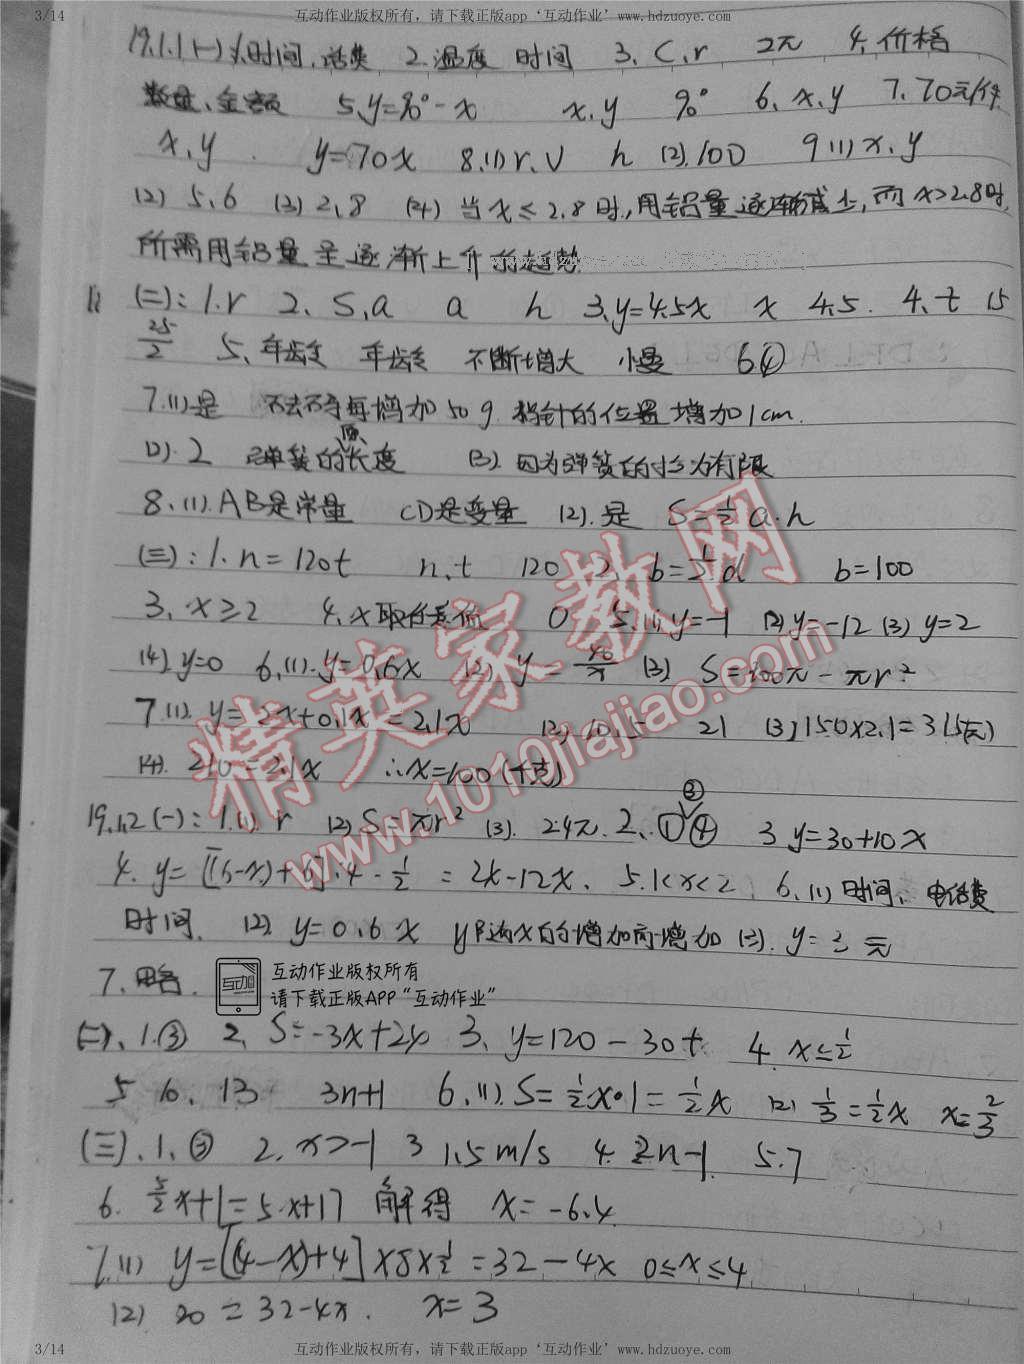 3/14 互动作业版权所有，请下载正版app‘互动作业’ www.hdzuoye.com 3/14
19.1.1 (一) 1.时间、话费 2.温度 时间 3、C、r 2π 4、价格
数量、金额 5、y=90°-x x、y 90° 6、x、y 7、70元/件
x、y y=70x 8、(1) r、V h (2).100 9 (1) x、y
(2) 5、6 (3) 2.8 (4) 当x≤2.8时,用铝量逐渐减少,而x>2.8时,
所需用铝量呈逐渐上升的趋势
(二):1.r 2、S、a a h 3、y=4.5x x 4.5. 4、t 15
25/2 5、年龄 年龄 不断增大 小曼 6④
7.(1)是 每增加50g 指针的位置增加1cm.
(2).2 弹簧的原长度 (3).因为弹簧的 有限
8、(1).AB是常量 CD是变量 (2).是 S=1/2 a·h
(三):1.n=120t n、t 120 2、b=1/2d b=100
3、x≥2 4、x取任意值 0 5.(1)、y=-1 (2)y=-12 (3) y=2
(4).y=0 6、(1).y=0.6x (2) y=40/x (3) S=100π-πr²
7 (1). y=2x+0.1x=2.1x (2)、10.5 21 (3) 150×2.1=315(元)
(4). 210=2.1x ∴x=100(千克)
19.1.2 (一):1.(1) r (2) S=πr² (3). 2.4π. 2、①③④ 3 y=30+10x
4. y=[(6-x)+6]·4·1/2 = 24-12x. 5.1<x<2 6、(1) 时间、电话费
时间. (2). y=0.6x y随x的增加而增加 (3). y=3元
7、略.
互动作业版权所有
请下载正版APP“互动作业”
(二)、1.③ 2、S=-3x+24 3、y=120-30t 4.x≤1/2
5 10、13 3n+1 6、(1).S=1/2x·1=1/2x (2) 1/3=1/2x x=2/3
(三).1、③ 2、x>-1 3 1.5m/s 4.2n-1 5.7
6. 5/2x+1=5x+17 解得 x=-6.4
7.(1) y=[(4-x)+4]×8×1/2=32-4x 0≤x≤4
(2) 20=32-4x. x=3
精英家教网
www.1010jiajiao.com
3/14 互动作业版权所有，请下载正版app‘互动作业’ www.hdzuoye.com 3/14